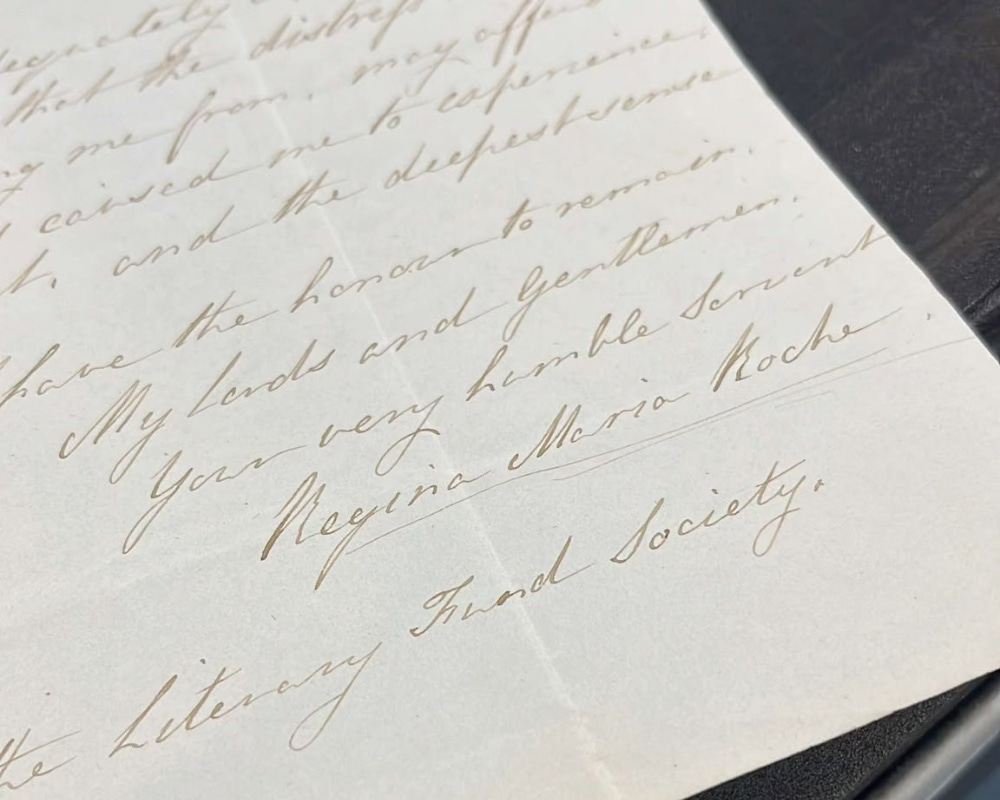 that the distress
me from, may
caused me to experience,
and the deepest sense
have the honour to remain,
My Lords and Gentlemen,
Your very humble Servant
Regina Maria Roche
the Literary Fund Society.